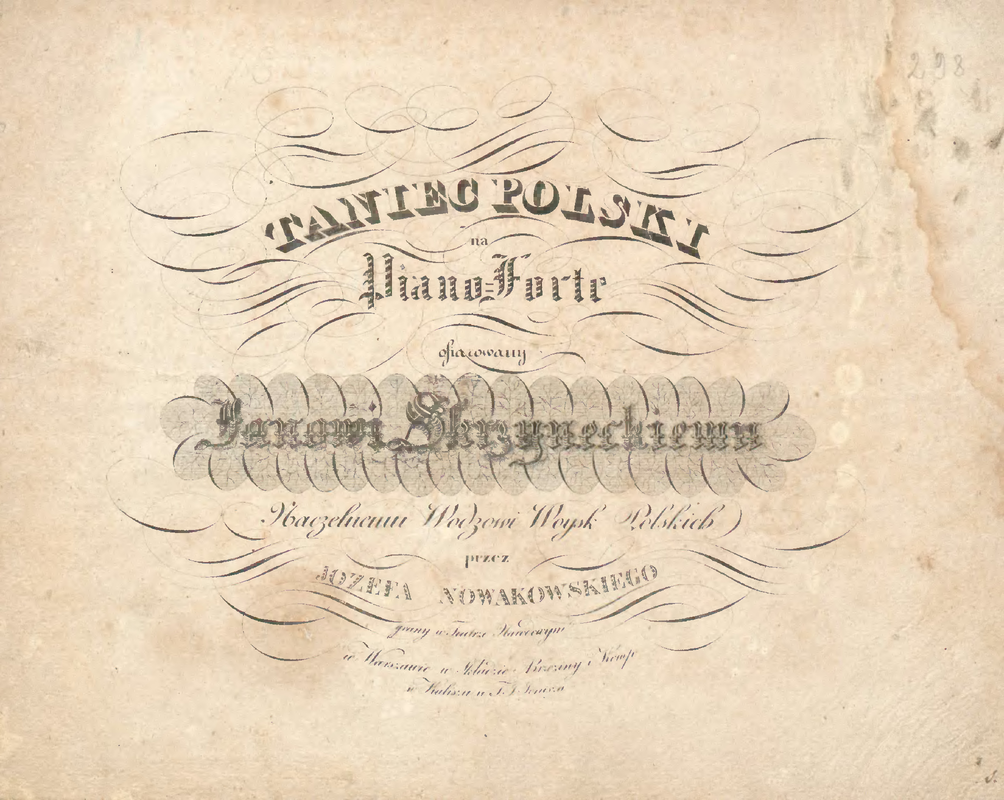 298
TANIEC POLSKI
na
Piano=Forte
ofiarowany
Janowi Skrzyneckiemu
Naczelnemu Wodzowi Woysk Polskich
przez
JOZEFA NOWAKOWSKIEGO
grany w Teatrze Narodowym
w Warszawie w Składzie Brzeziny i Komp
w Kaliszu u